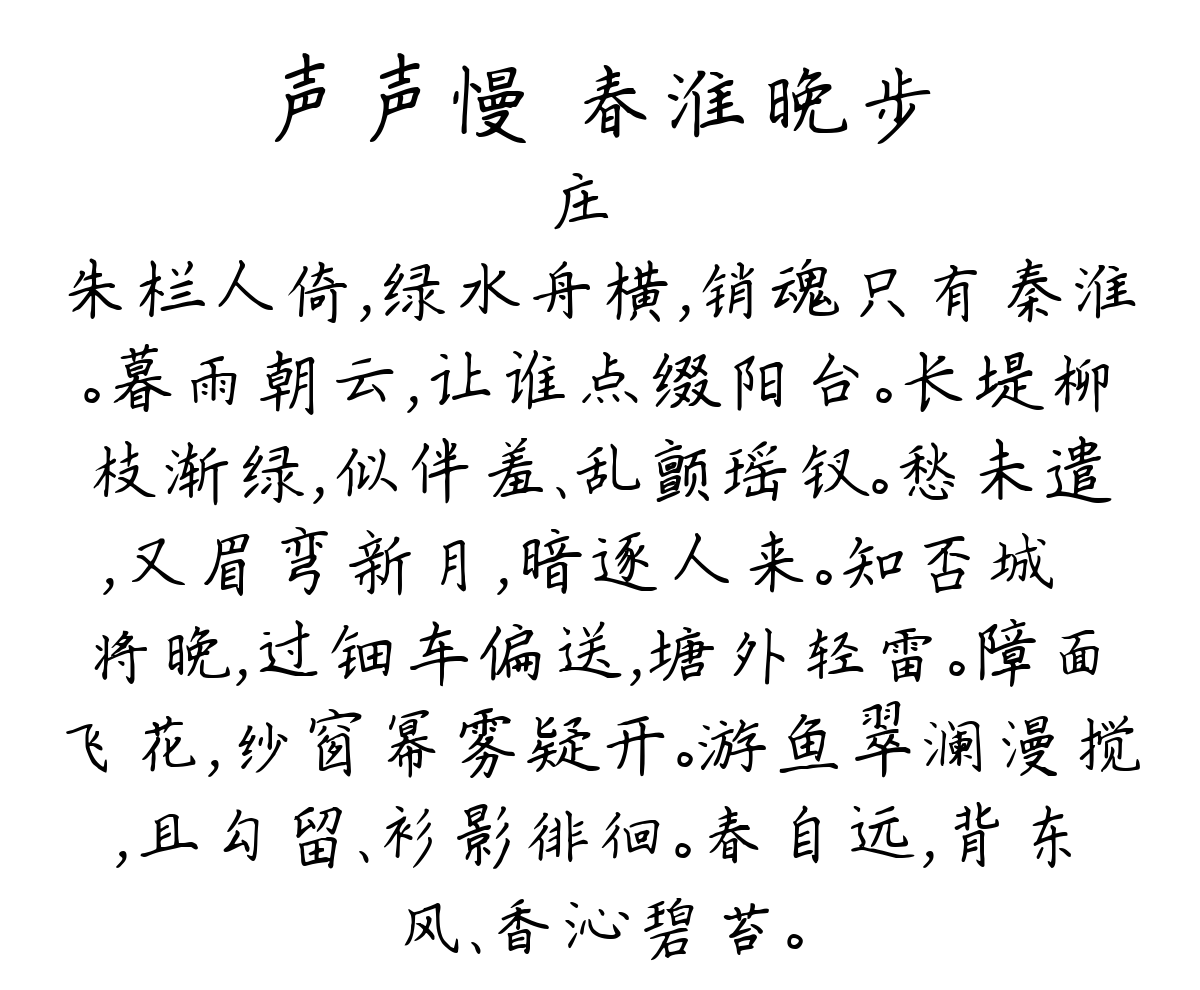 声声慢 春淮晚步
庄
朱栏人倚,绿水舟横,销魂只有秦淮
。暮雨朝云,让谁点缀阳台。长堤柳
枝渐绿,似伴羞、乱颤瑶钗。愁未遣
,又眉弯新月,暗逐人来。知否城
将晚,过钿车偏送,塘外轻雷。障面
飞花,纱窗幂雾疑开。游鱼翠澜漫搅
,且勾留、衫影徘徊。春自远,背东
风、香沁碧苔。